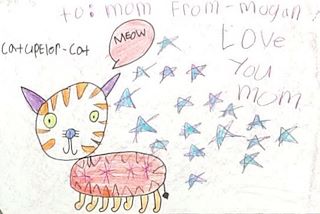 to: mom From-mogan
Love
You
mom
MEOW
catapelor-cat